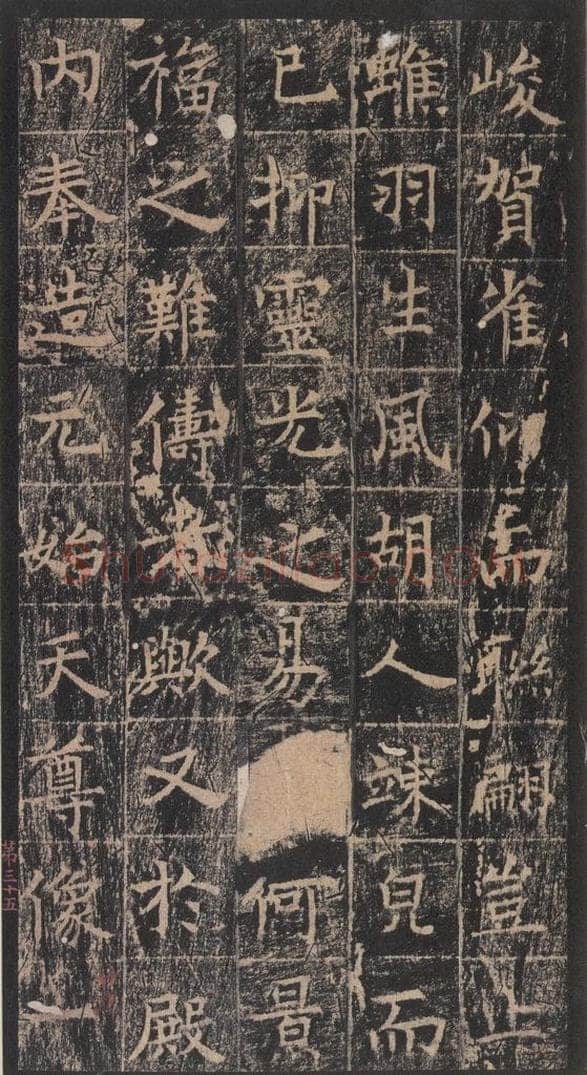 峻賀雀仰而聯翩豈止
雖羽生風胡人竦皃而
已抑靈光之易何景
福之難儔者歟又於殿
内奉造元始天尊像一
第三十五
shufaziliao.com